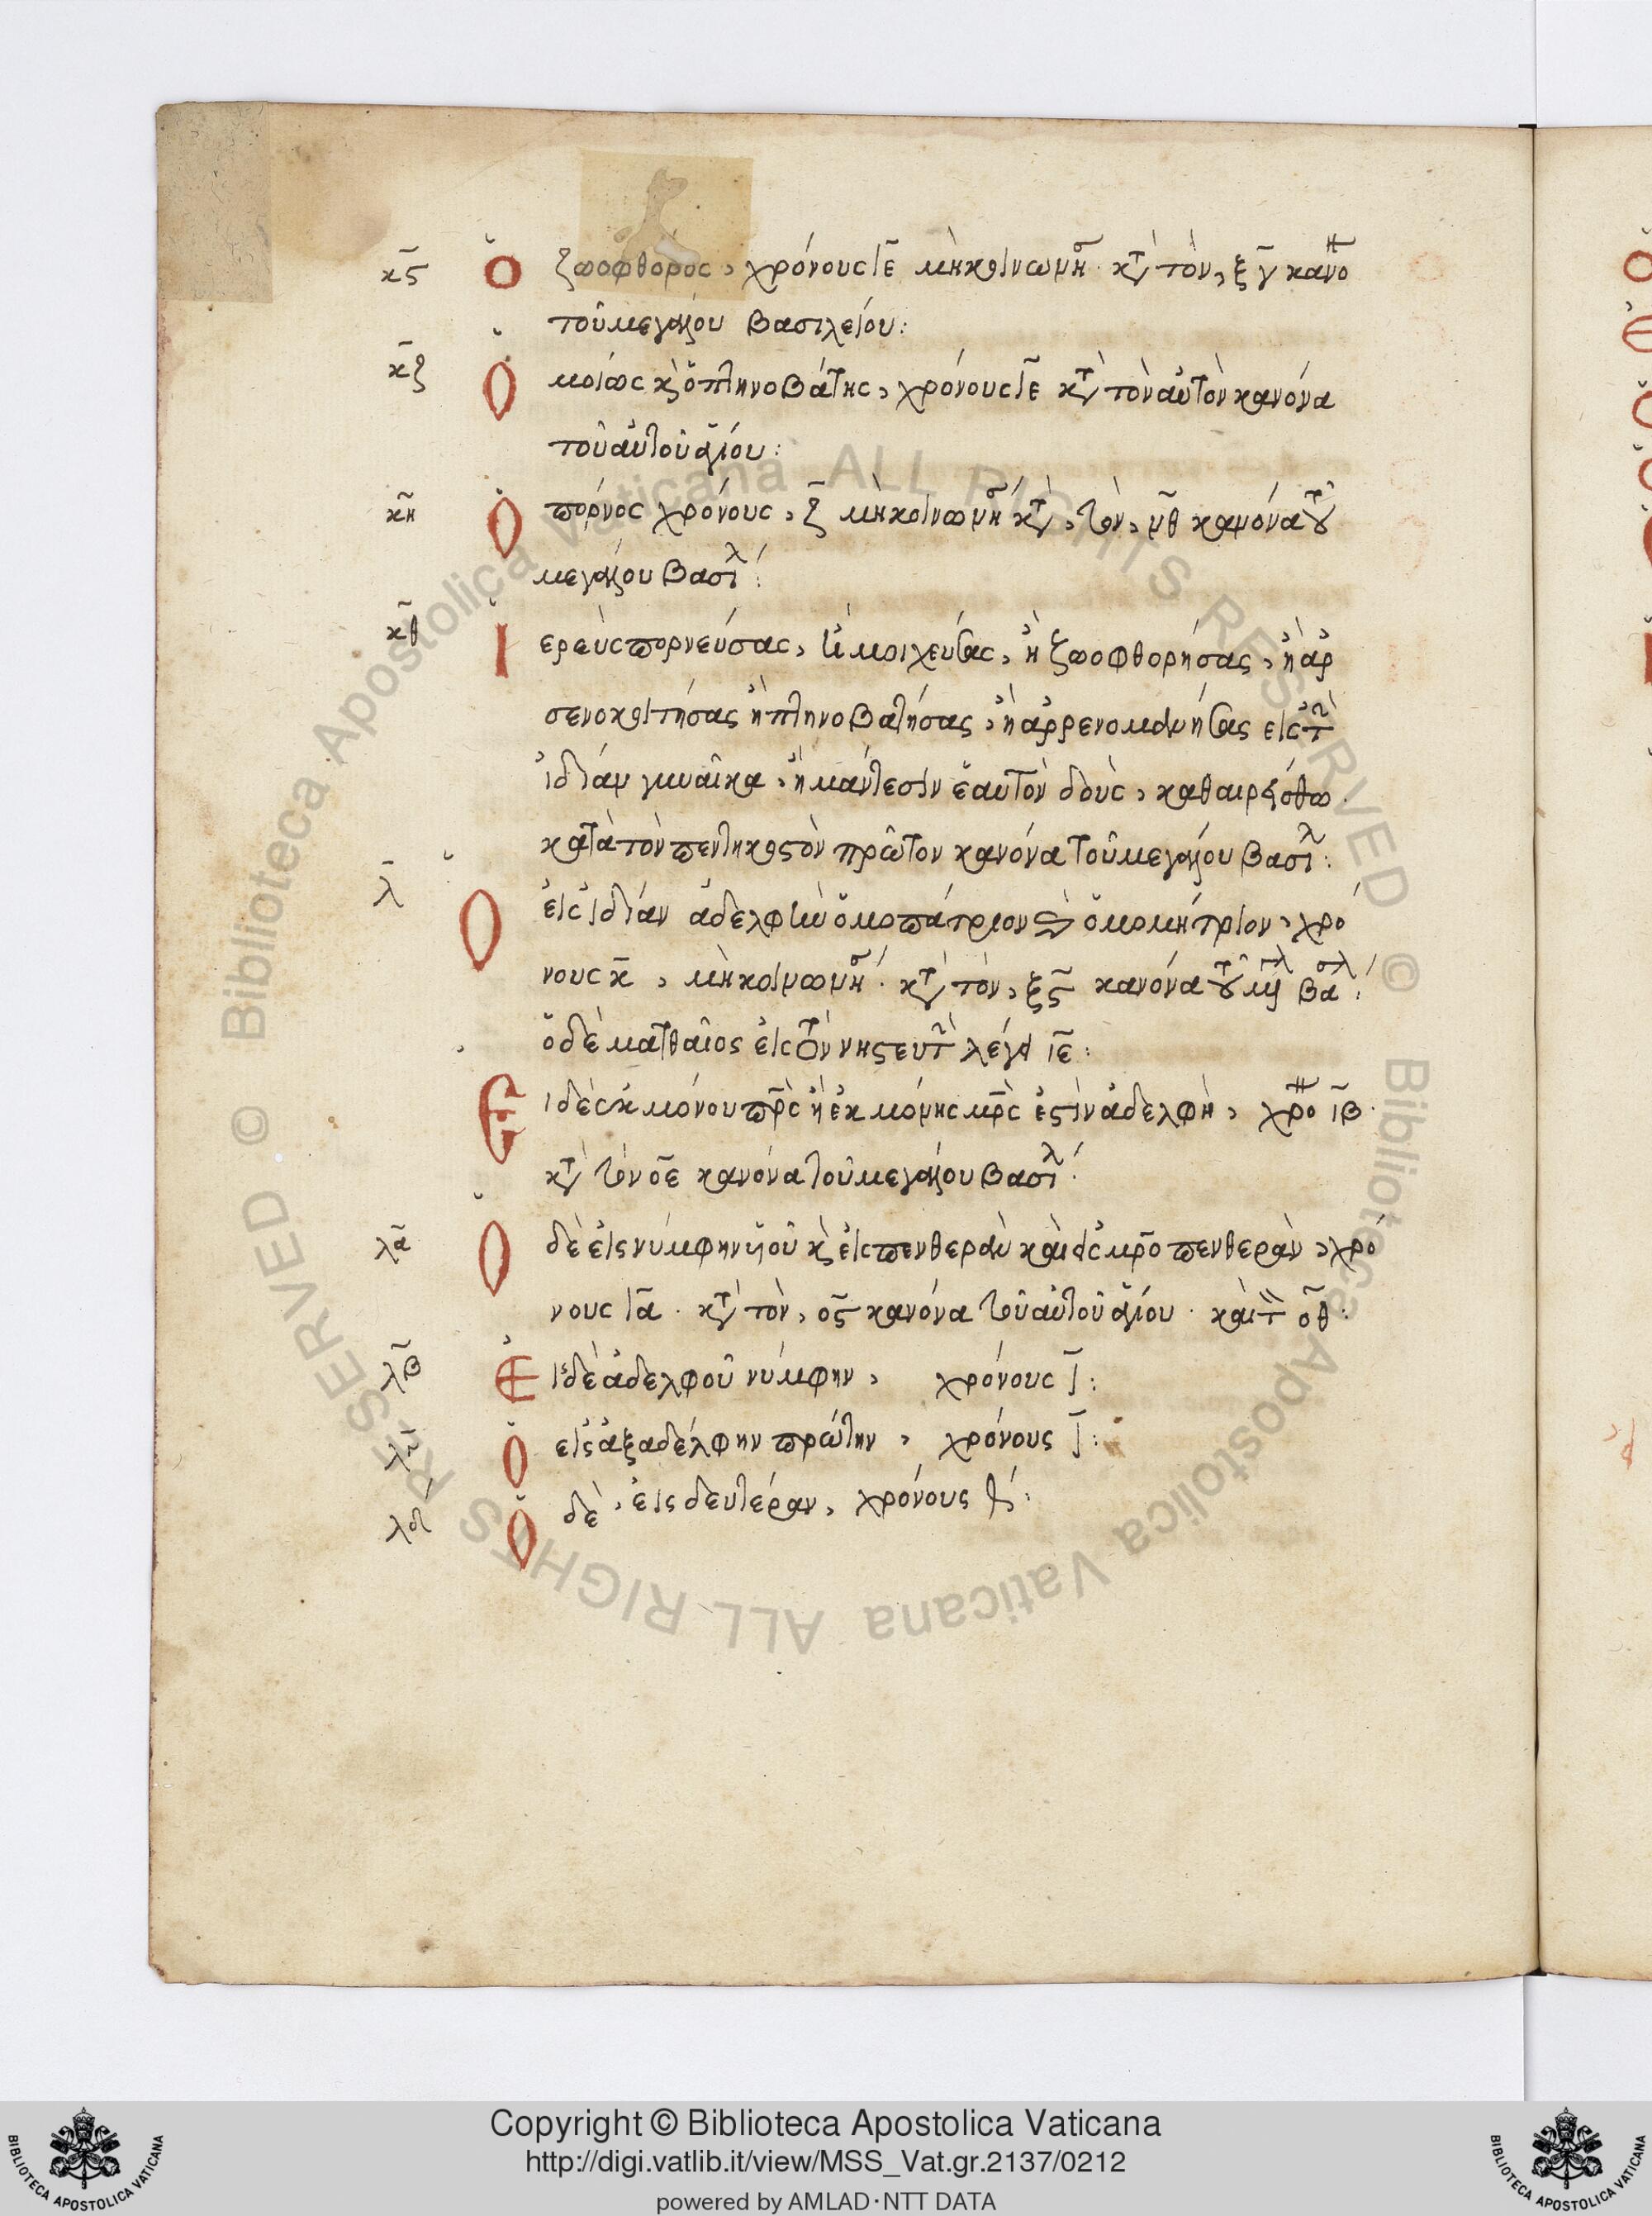 κϛ̄ Ὁ ζωοφθορος, χρόνους ιε̄ μὴ κοινωνη· κτ τὸν, ξγ̄ κανο
τοῦ μεγάλου βασιλείου:
κζ̄ Ὁ μοίως κ ὁ πτηνοβάτης, χρόνους ιε̄ κτ τὸν αὐτὸν κανόνα
τοῦ αὐτοῦ ἁγίου:
κη̄ Ὁ πόρνος χρόνους, ζ̄ μὴ κοινωνη κτ, τὸν, μθ̄ κανόνα τοῦ
μεγάλου βασιλ:
κθ̄ Ἱ ερεὺς πορνεύσας, ἢ μοιχεύσας, ἢ ζωοφθορήσας, ἢ ἀρ
σενοκοιτήσας ἢ πτηνοβατήσας, ἢ ἀρρενομανήσας εἰς τ
ἰδίαν γυναῖκα, ἢ μάντεσιν ἑαυτὸν δοὺς, καθαιρείσθω·
κατὰ τὸν πεντηκοστὸν πρῶτον κανόνα τοῦ μεγάλου βασιλ:
λ̄ Ὁ εἰς ἰδίαν ἀδελφὴν ὁμοπάτριον ὁμομήτριον, χρό
νους κ̄, μὴ κοινωνη· κτ τὸν, ξϛ̄ κανόνα τοῦ μγ βα:
ὁ δὲ ματθαῖος εἰς τὸν νηστευτ λέγει ιε̄:
Ε ἰ δὲ ἐκ μόνου πρ̄ς ἢ ἐκ μόνης μρ̄ς ἐστὶν ἀδελφὴ, χρο ιβ̄·
κτ τὸν οε̄ κανόνα τοῦ μεγάλου βασιλ:
λᾱ Ὁ δὲ εἰς νύμφην ὑοῦ κ εἰς πενθερὰν καὶ εἰς μρ̄ο πενθερὰν, χρό
νους ιᾱ· κτ τὸν, οϛ̄ κανόνα τοῦ αὐτοῦ ἁγίου· καὶ τ οθ̄:
λβ̄ Ε ἰς δὲ ἀδελφοῦ νύμφην, χρόνους ῑ:
λγ̄ Ὁ εἰς ἀξαδέλφην πρώτην, χρόνους ῑ:
λδ Ὁ δὲ, εἰς δευτέραν, χρόνους θ:
Copyright © Biblioteca Apostolica Vaticana
http://digi.vatlib.it/view/MSS_Vat.gr.2137/0212
powered by AMLAD·NTT DATA
BIBLIOTECA APOSTOLICA VATICANA
BIBLIOTECA APOSTOLICA VATICANA
© Biblioteca Apostolica Vaticana ALL RIGHTS RESERVED © Biblioteca Apostolica Vaticana ALL RIGHTS RESERVED